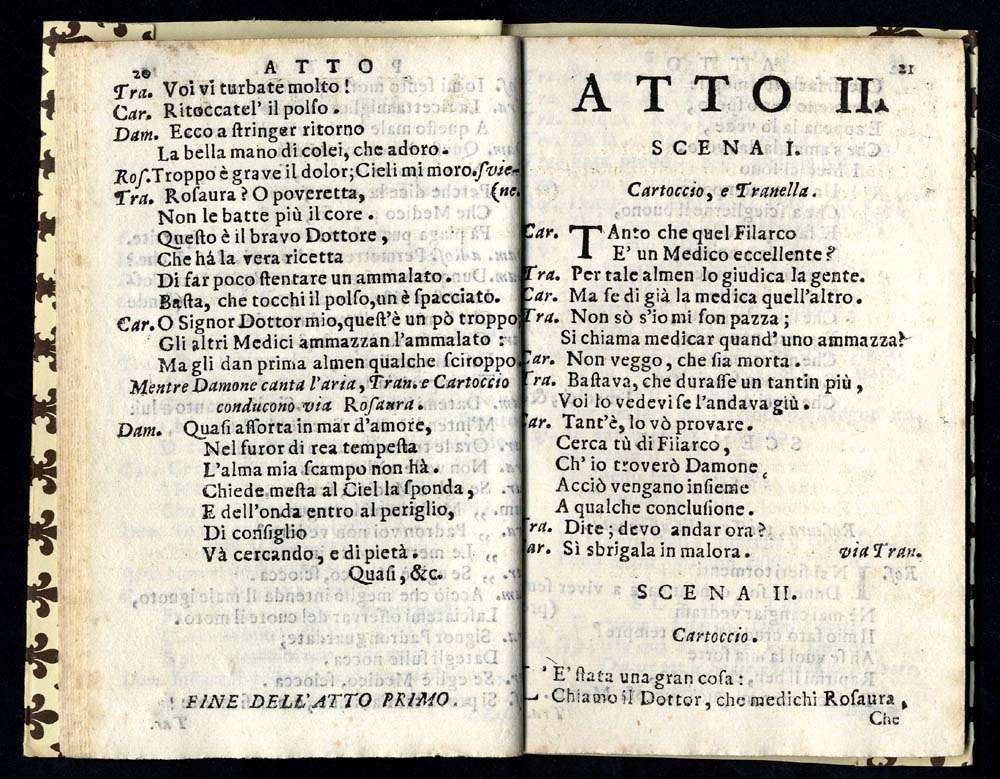 20 ATTO
Tra. Voi vi turbate molto!
Car. Ritoccatel' il polſo.
Dam. Ecco a ſtringer ritorno
La bella mano di colei, che adoro.
Roſ. Troppo è grave il dolor; Cieli mi moro. ſvie-
Tra. Roſaura? O poveretta, (ne.
Non le batte più il core.
Queſto è il bravo Dottore,
Che há la vera ricetta
Di far poco ſtentare un ammalato.
Baſta, che tocchi il polſo, un è ſpacciato.
Car. O Signor Dottor mio, queſt'è un pò troppo
Gli altri Medici ammazzan l'ammalato:
Ma gli dan prima almen qualche ſciroppo.
Mentre Damone canta l'aria, Tran. e Cartoccio
conducono via Roſaura.
Dam. Quaſi aſſorta in mar d'amore,
Nel furor di rea tempeſta
L'alma mia ſcampo non hà.
Chiede meſta al Ciel la ſponda,
E dell'onda entro al periglio,
Di conſiglio
Và cercando, e di pietà.
Quaſi, &c.
FINE DELL'ATTO PRIMO.
21
ATTO II.
SCENA I.
Cartoccio, e Tranella.
Car. TAnto che quel Filarco
E' un Medico eccellente?
Tra. Per tale almen lo giudica la gente.
Car. Ma ſe di già la medica quell'altro.
Tra. Non sò s'io mi ſon pazza;
Si chiama medicar quand'uno ammazza?
Car. Non veggo, che ſia morta.
Tra. Baſtava, che duraſſe un tantin più,
Voi lo vedevi ſe l'andava giù.
Car. Tant'è, lo vò provare.
Cerca tù di Filarco,
Ch' io troverò Damone
Acciò vengano inſieme
A qualche concluſione.
Tra. Dite; devo andar ora?
Car. Sì sbrigala in malora. via Tran.
SCENA II.
Cartoccio.
L' E' ſtata una gran coſa:
Chiamo il Dottor, che medichi Roſaura,
Che